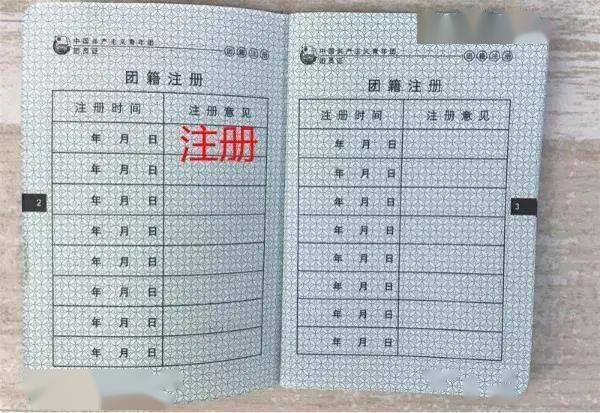 中国共产主义青年团
团员证
团籍注册
团籍注册
注册时间 注册意见
年 月 日 注册
年 月 日
年 月 日
年 月 日
年 月 日
年 月 日
年 月 日
年 月 日
2
中国共产主义青年团
团员证
团籍注册
团籍注册
注册时间 注册意见
年 月 日
年 月 日
年 月 日
年 月 日
年 月 日
年 月 日
年 月 日
年 月 日
3